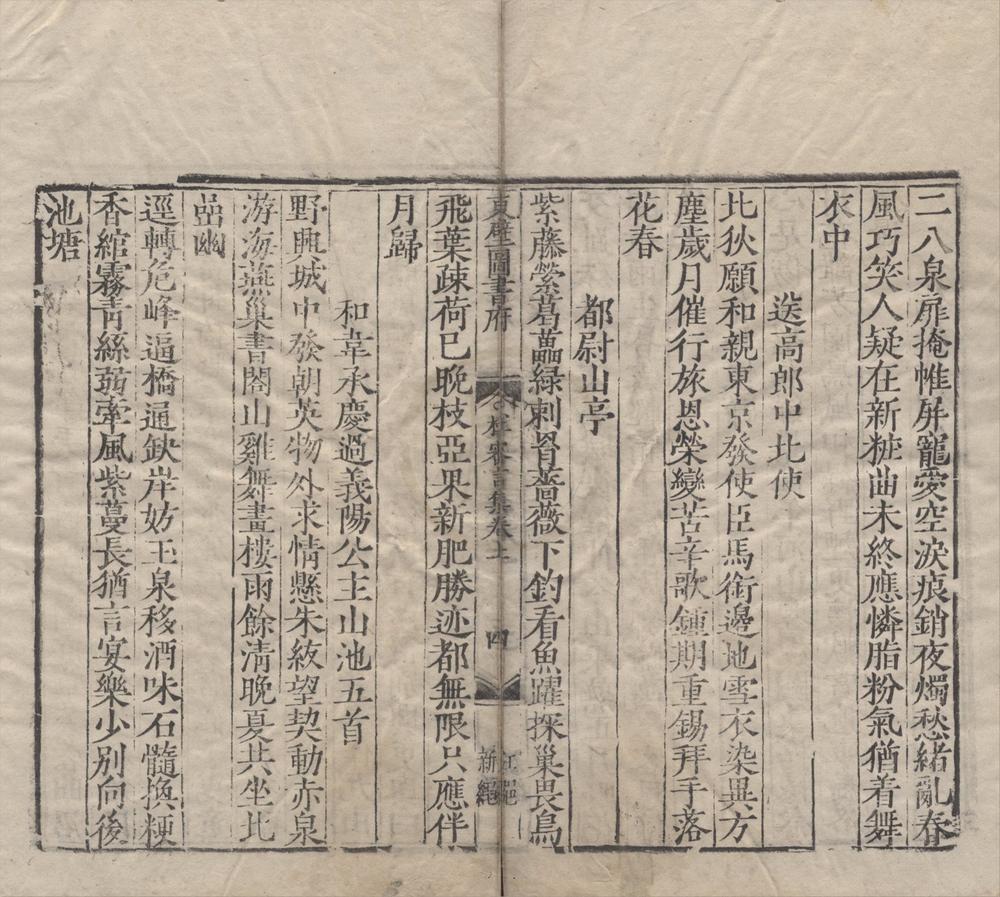 二八泉扉掩帷屏寵愛空淚痕銷夜燭愁緒亂春
風巧笑人疑在新粧曲未終應憐脂粉氣猶着舞
衣中
送高郎中北使
北狄願和親東京發使臣馬銜邊地雪衣染異方
塵歲月催行旅恩榮變苦辛歌鍾期重錫拜手落
花春
都尉山亭
紫藤縈葛藟綠刺罥薔薇下釣看魚躍探巢畏鳥
東壁圖書府
杜審言集卷上
四
江 新
飛葉疎荷已晚枝亞果新肥勝迹都無限只應伴
月歸
和韋承慶過義陽公主山池五首
野興城中發朝英物外求情懸朱紱望契動赤泉
游海燕巢書閣山雞舞畫樓雨餘清晚夏共坐北
嵓幽
逕轉危峰逼橋通缺岸妨玉泉移酒味石髓換粳
香綰霧青絲弱牽風紫蔓長猶言宴樂少別向後
池塘